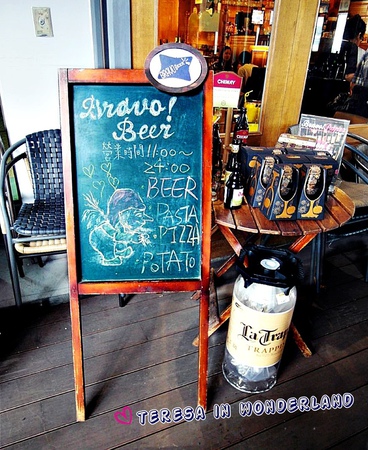 Bravo!
Beer
營業時間 11:00~
24:00
BEER
PASTA
PIZZA
POTATO
CHIMAY
La Trap
TRAPP
TERESA IN WONDERLAND